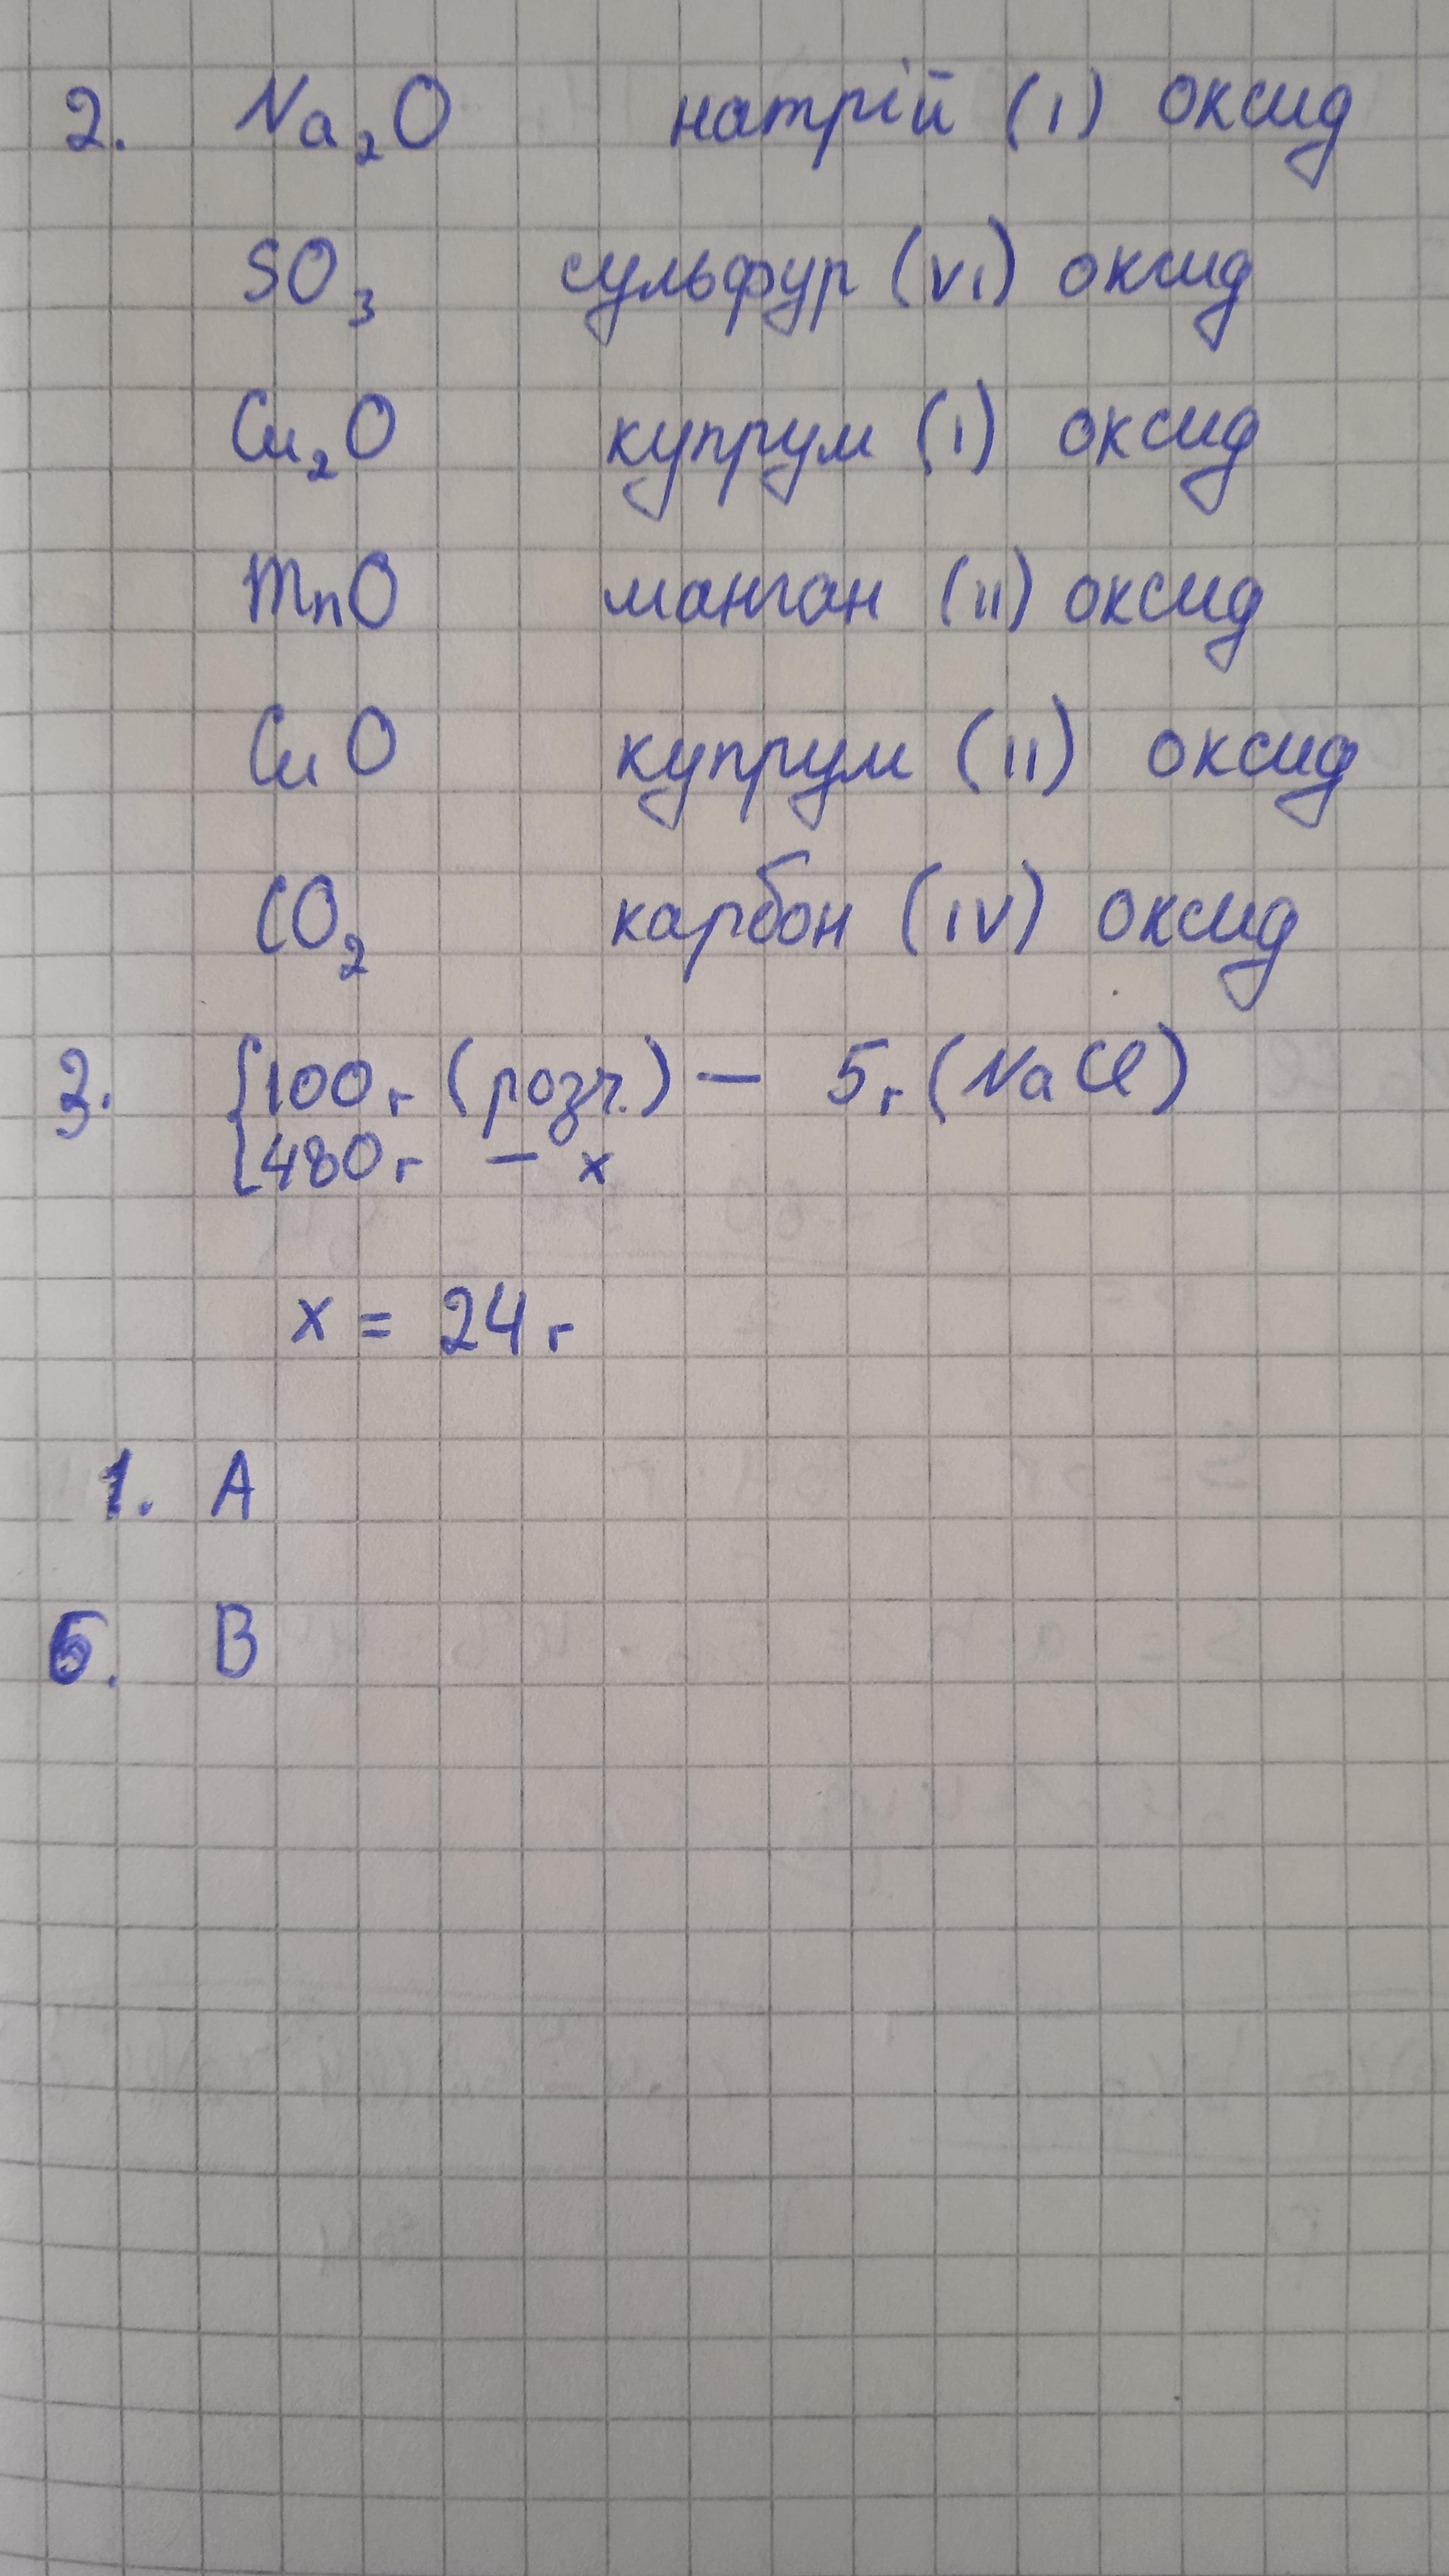 2. Na₂O натрій (I) оксид
SO₃ сульфур (VI) оксид
Cu₂O купрум (I) оксид
MnO манган (II) оксид
CuO купрум (II) оксид
CO₂ карбон (IV) оксид
3. {100 г (розч.) — 5 г (NaCl)
480 г — x
x = 24 г
1. А
5. В